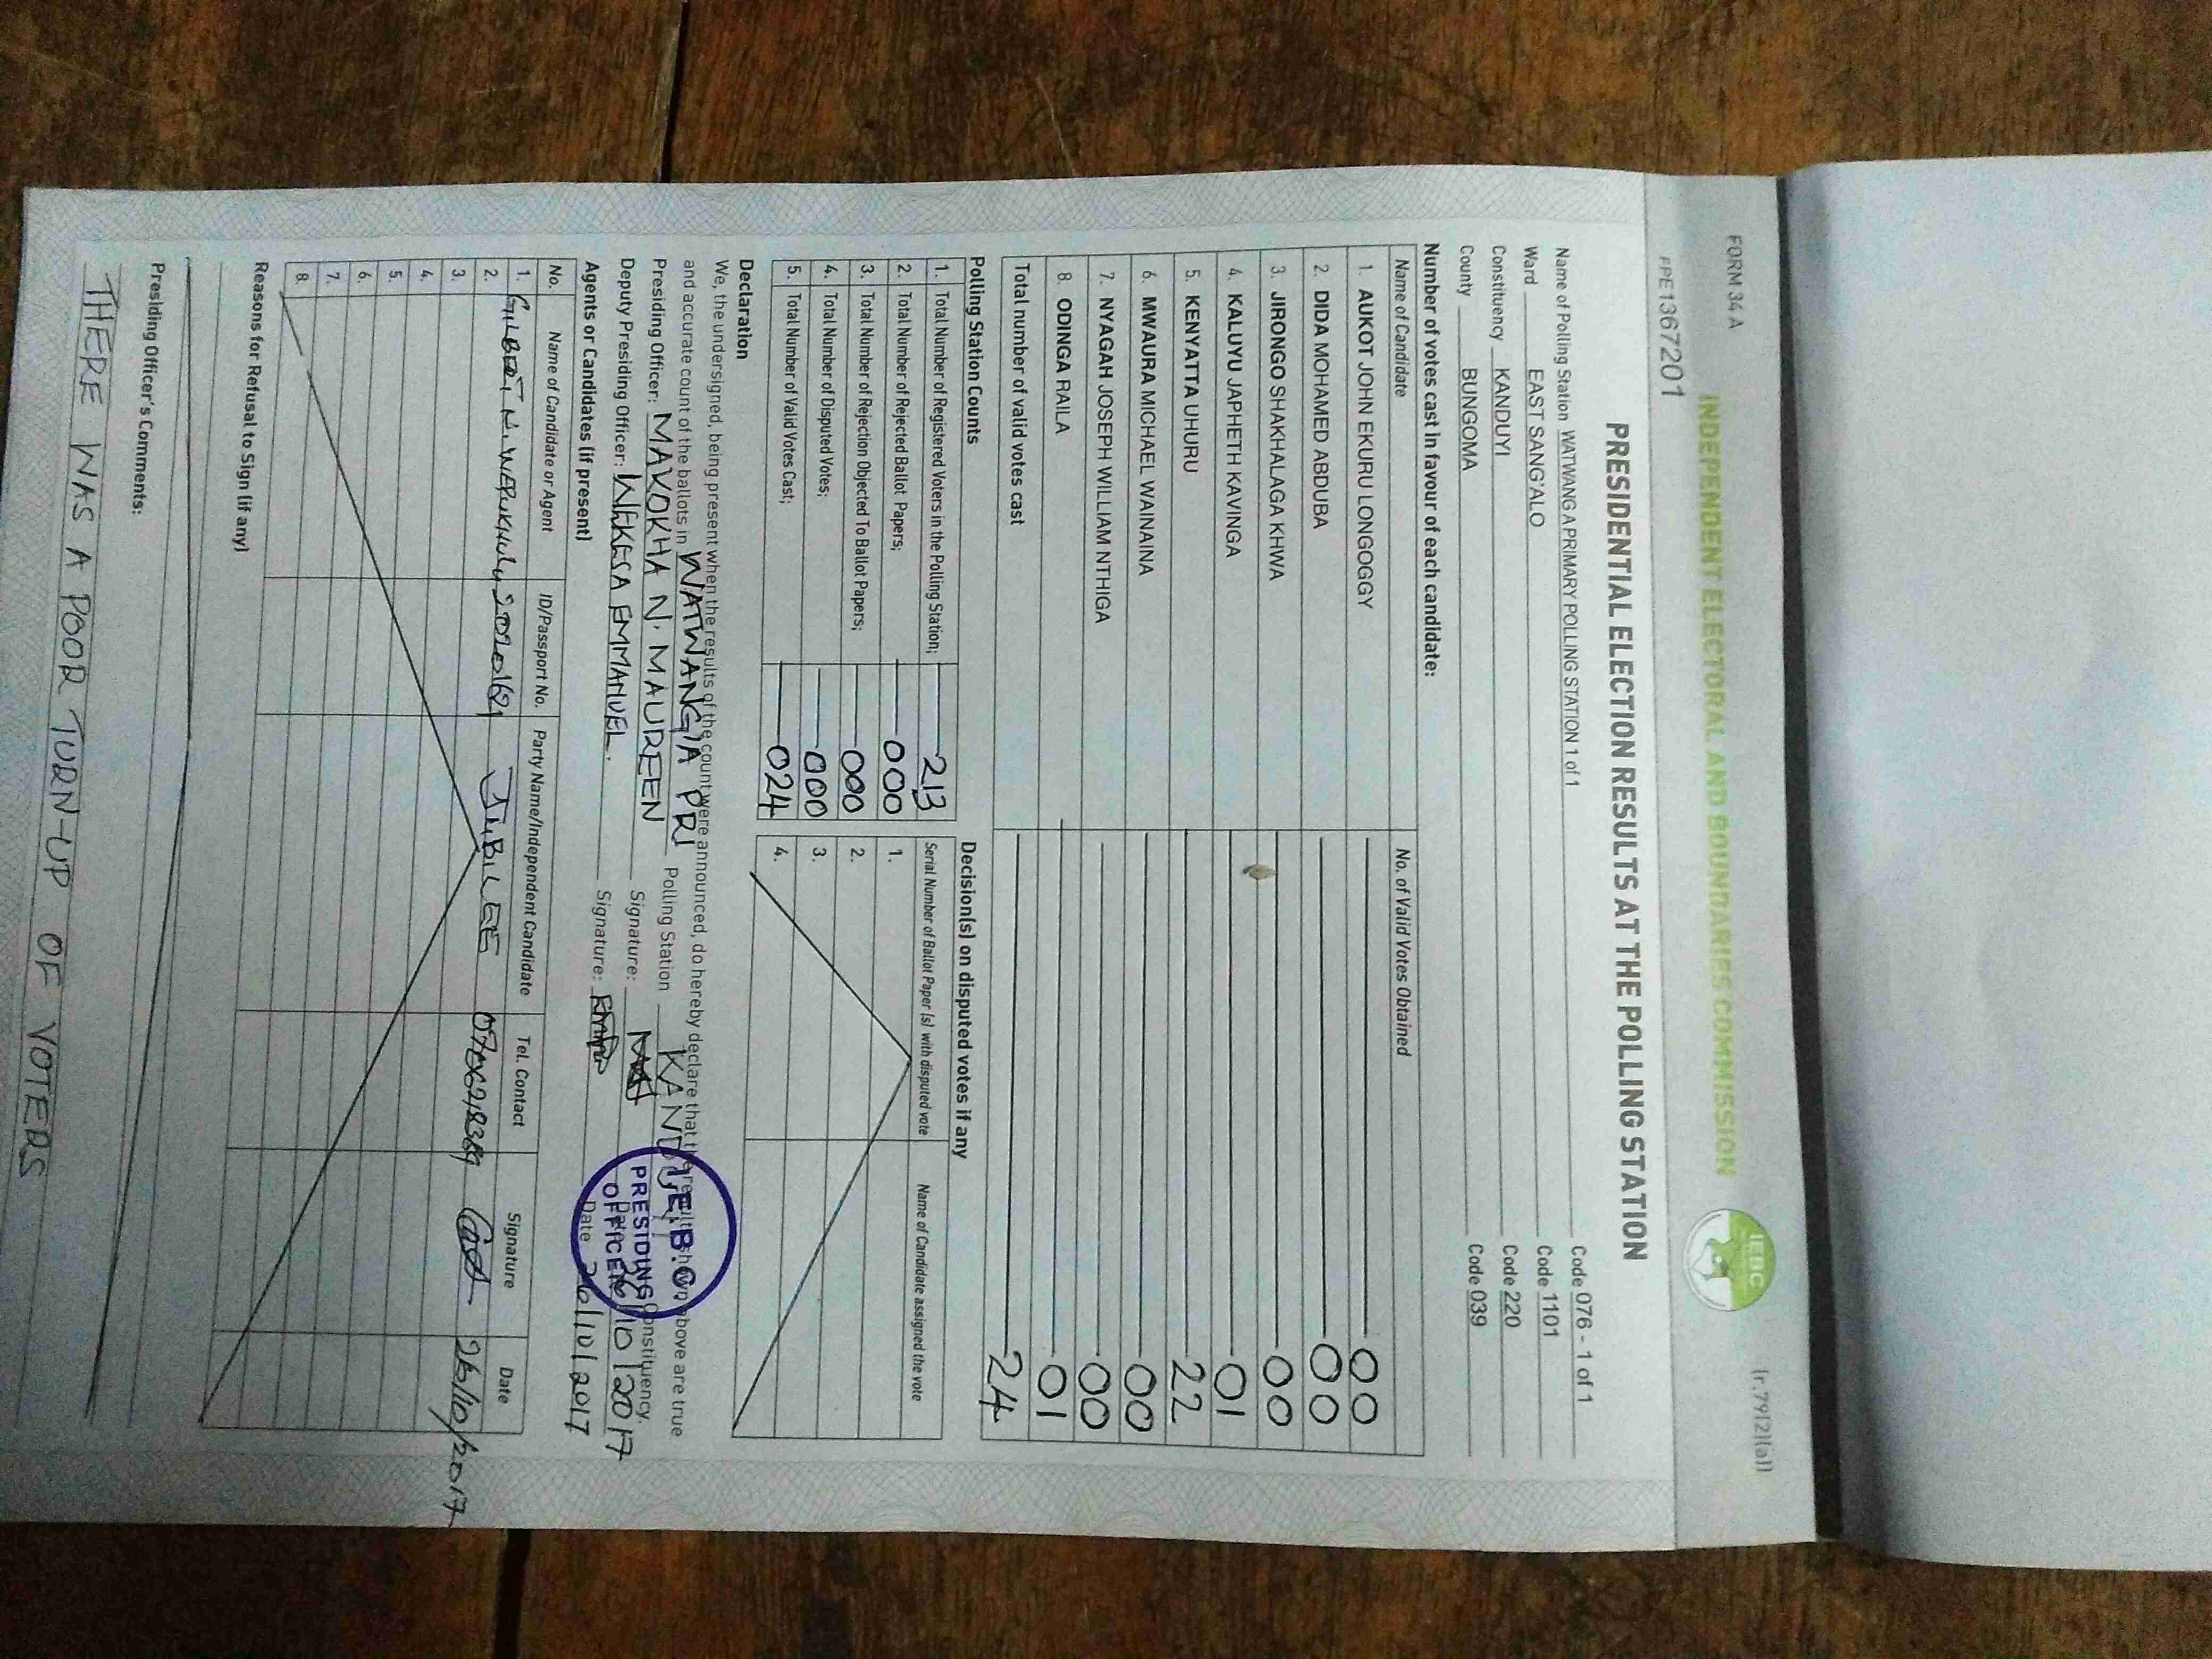 FORM 34 A
(r.79(2)(a))
INDEPENDENT ELECTORAL AND BOUNDARIES COMMISSION
IEBC
FPE1367201
PRESIDENTIAL ELECTION RESULTS AT THE POLLING STATION
Name of Polling Station WATWANG A PRIMARY POLLING STATION 1 of 1 Code 076 - 1 of 1
Ward EAST SANG'ALO Code 1101
Constituency KANDUYI Code 220
County BUNGOMA Code 039
Number of votes cast in favour of each candidate:
Name of Candidate No. of Valid Votes Obtained
1. AUKOT JOHN EKURU LONGOGGY 00
2. DIDA MOHAMED ABDUBA 00
3. JIRONGO SHAKHALAGA KHWA 00
4. KALUYU JAPHETH KAVINGA 01
5. KENYATTA UHURU 22
6. MWAURA MICHAEL WAINAINA 00
7. NYAGAH JOSEPH WILLIAM NTHIGA 00
8. ODINGA RAILA 01
Total number of valid votes cast 24
Polling Station Counts
1. Total Number of Registered Voters in the Polling Station; 213
2. Total Number of Rejected Ballot Papers; 000
3. Total Number of Rejection Objected To Ballot Papers; 000
4. Total Number of Disputed Votes; 000
5. Total Number of Valid Votes Cast; 024
Decision(s) on disputed votes if any
Serial Number of Ballot Paper (s) with disputed vote Name of Candidate assigned the vote
1.
2.
3.
4.
Declaration
We, the undersigned, being present when the results of the count were announced, do hereby declare that the results shown above are true
and accurate count of the ballots in WATWANGIA PRI Polling Station KANDUYI Constituency.
Presiding Officer: MAKOKHA N. MAUREEN Signature: Date 26/10/2017
Deputy Presiding Officer: WEKESA EMMANUEL. Signature: Date 26/10/2017
I.E.B.C
PRESIDING
OFFICER
Agents or Candidates (if present)
No. Name of Candidate or Agent ID/Passport No. Party Name/Independent Candidate Tel. Contact Signature Date
1. GILBERT N. JUBILEE 26/10/2017
2.
3.
4.
5.
6.
7.
8.
Reasons for Refusal to Sign (if any)
Presiding Officer's Comments:
THERE WAS A POOR TURN-UP OF VOTERS